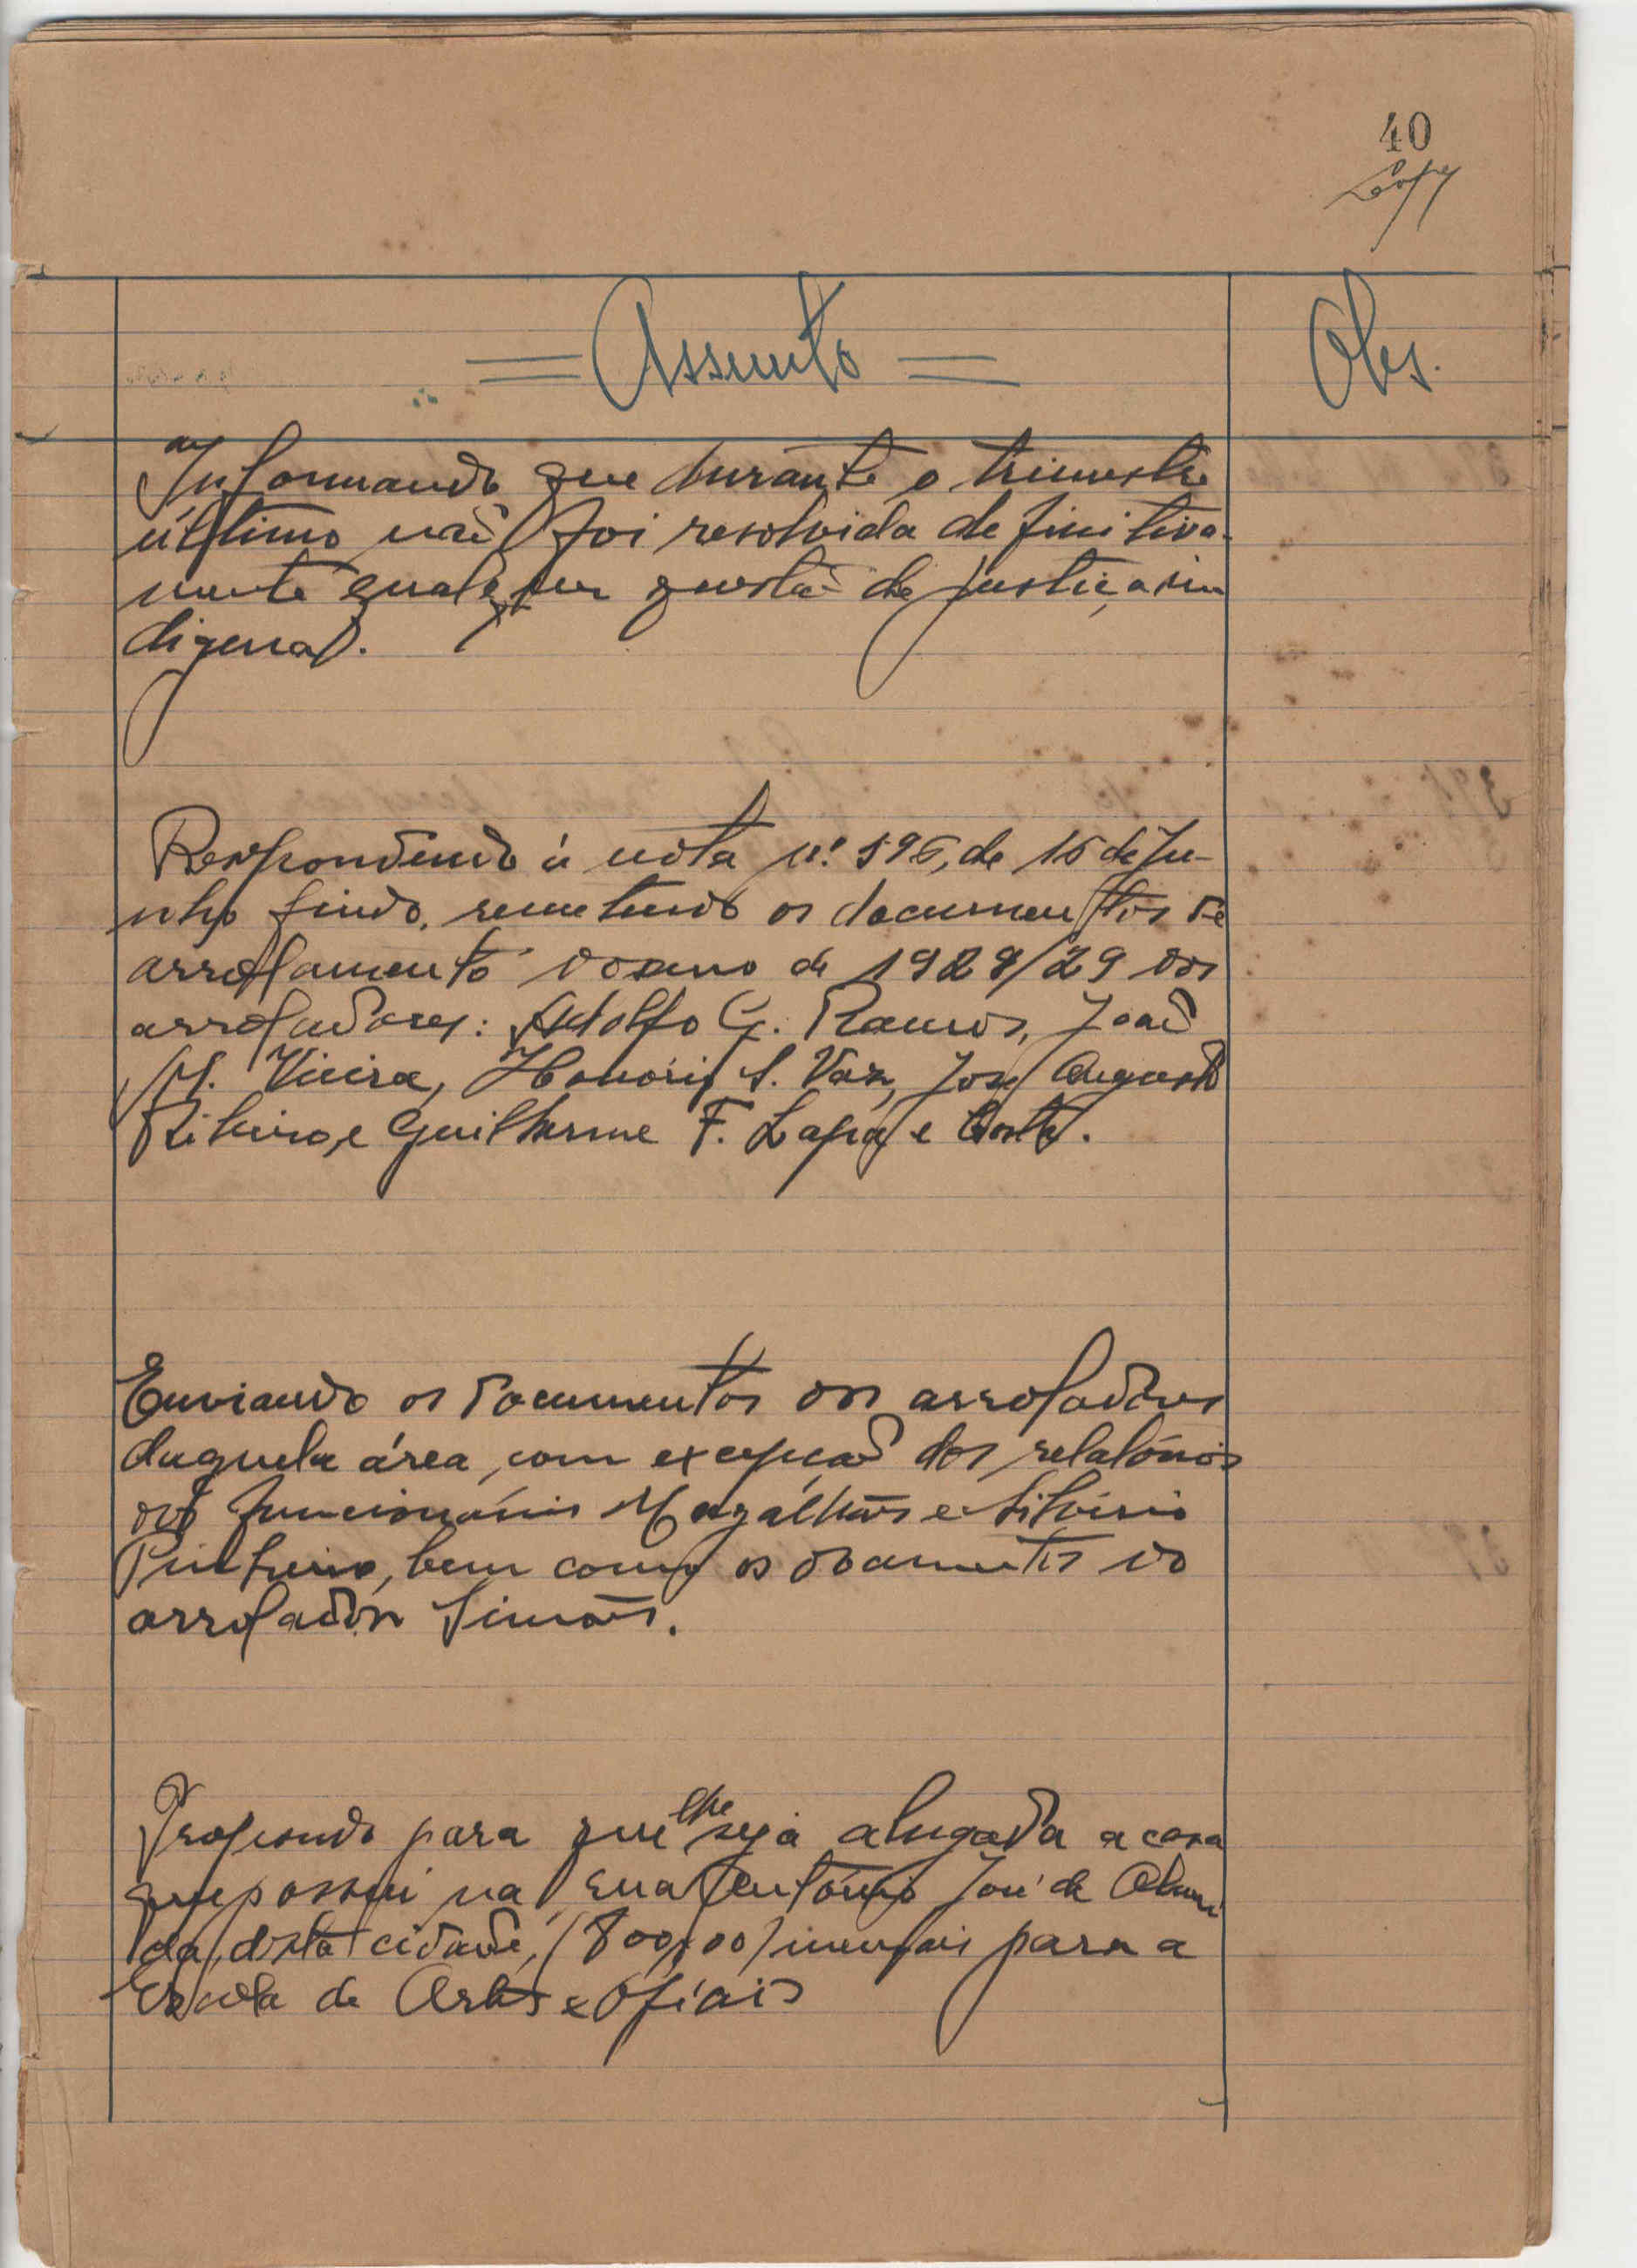 40
= Assunto =
Obs.
Informando que durante o trimestre
último não foi resolvida definitiva-
mente qualquer questão de justiça in
digena.
Respondendo á nota n.º 596, de 15 de Ju-
nho findo, remetendo os documentos de
arrolamento do ano de 1928/29 dos
arroladores: Adolfo G. Ramos, João
M. Vieira, Honório S. Vaz, José Augusto
Ribeiro, e Guilherme F. Lapa e Costa.
Enviando os documentos dos arroladores
daquela área, com excepção dos relatórios
dos funcionários Magalhães e Silvério
Pinheiro, bem como os documentos do
arrolador Simões.
Propondo para que lhe seja alugada a casa
que possui na rua António José de Almei
da, desta cidade, (800,00) mensais para a
Escola de Artes e Ofícios